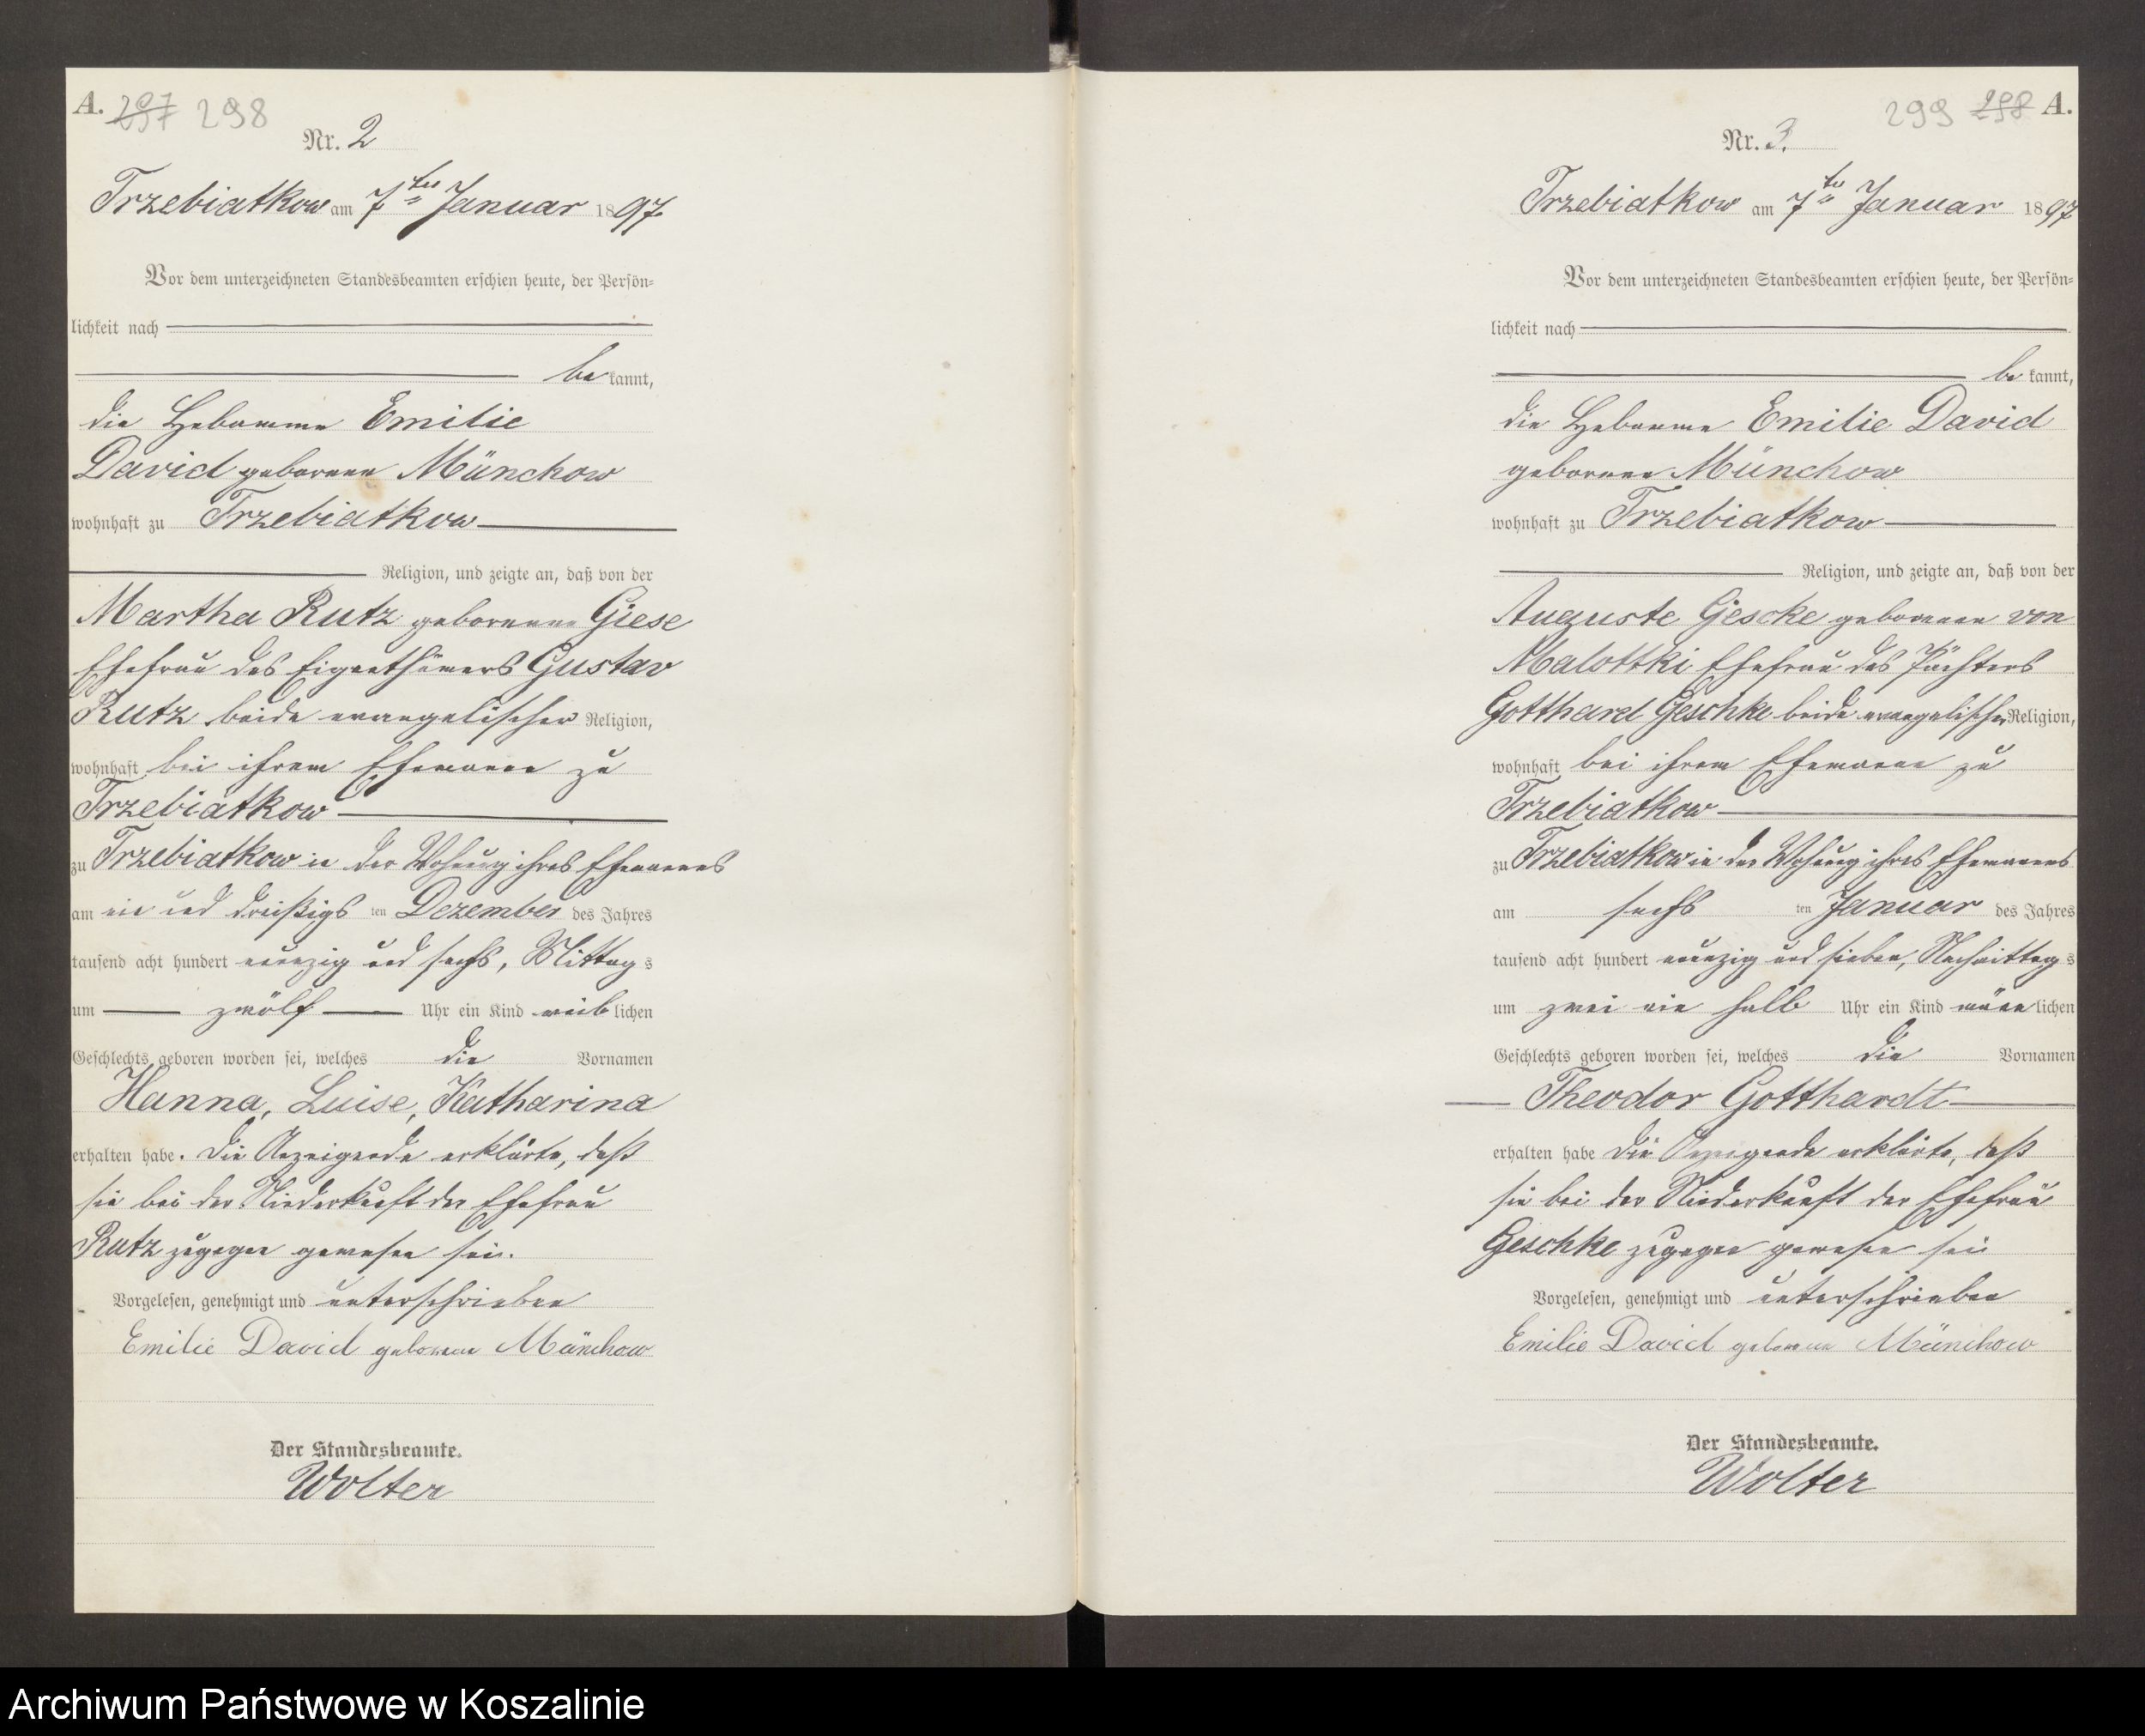 A. 297 298
Nr. 2
Trzebiatkow am 7ten Januar 1897
Vor dem unterzeichneten Standesbeamten erschien heute, der Persön-
lichkeit nach
be kannt,
die Hebamme Emilie
David geborene Münchow
wohnhaft zu Trzebiatkow
Religion, und zeigte an, daß von der
Martha Rutz geborenen Giese
Ehefrau des Eigenthümers Gustav
Rutz beide evangelischer Religion,
wohnhaft bei ihrem Ehemanne zu
Trzebiatkow
zu Trzebiatkow in der Wohnung ihres Ehemannes
am ein und dreißigs ten Dezember des Jahres
tausend acht hundert neunzig und sechs, Mittag s
um zwölf Uhr ein Kind weib lichen
Geschlechts geboren worden sei, welches die Vornamen
Hanna, Luise, Katharina
erhalten habe. Die Anzeigende erklärte, daß
sie bei der Niederkunft der Ehefrau
Rutz zugegen gewesen sei.
Vorgelesen, genehmigt und unterschrieben
Emilie David geborene Münchow
Der Standesbeamte.
Wolter
299 298 A.
Nr. 3.
Trzebiatkow am 7ten Januar 1897
Vor dem unterzeichneten Standesbeamten erschien heute, der Persön-
lichkeit nach
be kannt,
die Hebamme Emilie David
geborene Münchow
wohnhaft zu Trzebiatkow
Religion, und zeigte an, daß von der
Auguste Gescke geborenen von
Malottki Ehefrau des Pächters
Gotthard Geschke beide evangelischer Religion,
wohnhaft bei ihrem Ehemanne zu
Trzebiatkow
zu Trzebiatkow in der Wohnung ihres Ehemannes
am sechs ten Januar des Jahres
tausend acht hundert neunzig und sieben, Nachmittag s
um zwei ein halb Uhr ein Kind männ lichen
Geschlechts geboren worden sei, welches die Vornamen
Theodor Gotthardt
erhalten habe Die Anzeigende erklärte, daß
sie bei der Niederkunft der Ehefrau
Geschke zugegen gewesen sei
Vorgelesen, genehmigt und unterschrieben
Emilie David geborene Münchow
Der Standesbeamte.
Wolter
Archiwum Państwowe w Koszalinie